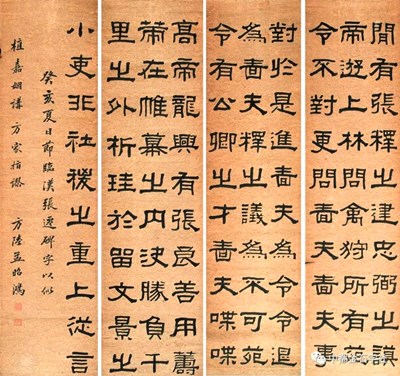 間有張釋之建忠弼之謨
帝遊上林問禽狩所有苑
令不對更問嗇夫嗇夫事
對於是進嗇夫為令令退
為嗇夫釋之議為不可苑
令有公卿之才嗇夫喋喋
高帝龍興有張良善用籌
策在帷幕之內決勝負千
里之外析珪於留文景之
小吏非社稷之重上從言
癸亥夏日節臨漢張遷碑字以似
植嘉姻講方家指謬 方陸孟昭鴻